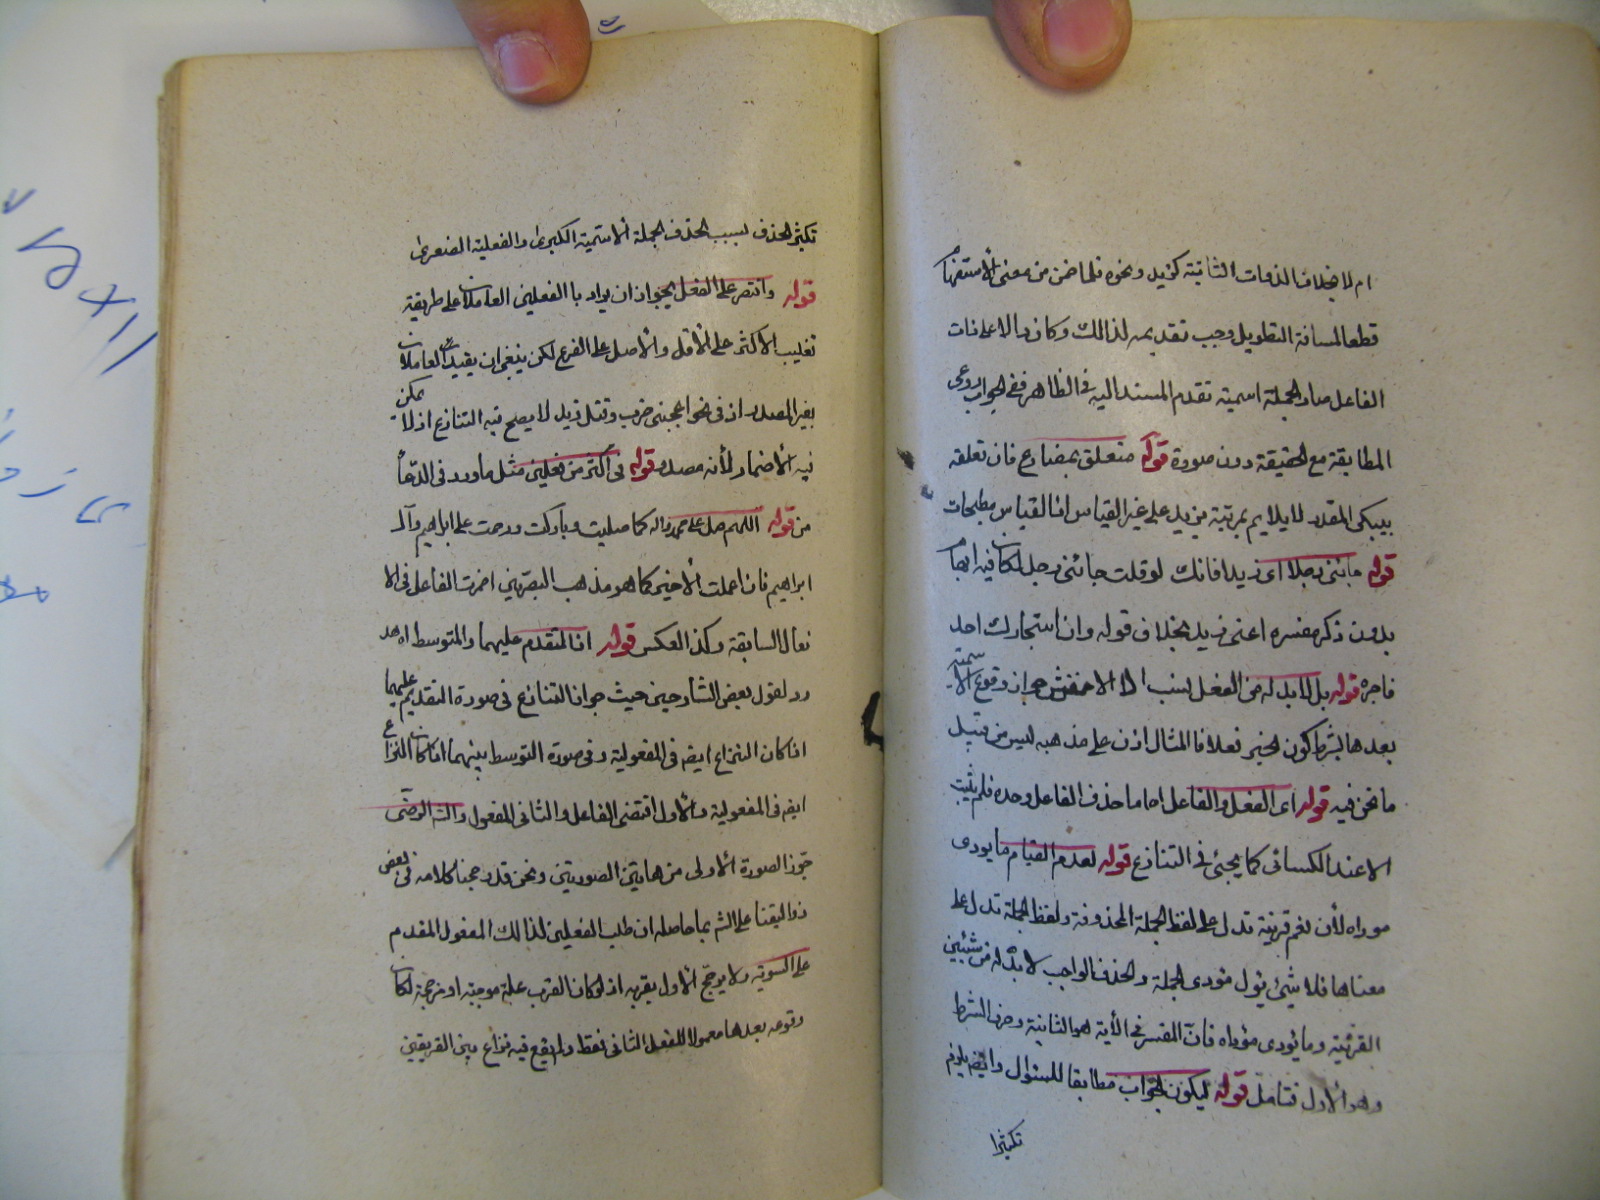 ام لا بخلاف الذوات الثانية كزيد ونحوه فلما ضمن من معنى الأستفهام
قطعا لمسافة التطويل وجب تقديمه لذالك وكان دالا على ذات
الفاعل صار الجملة اسمية تقدم المسند اليه في الظاهر ففي الجواب روعي
المطابقة مع الحقيقة دون صورة قوله متعلق بمضارع فان تعلقه
بيبكى المقدر لا يلايم بمرتبة من يدل على غير القياس اذ القياس مطيحات
قوله جائنى رجل اى زيد فانك لو قلت جائنى رجل لكان فيه ابهام
بدون ذكر مفسره اعنى زيد بخلاف قوله وان استجارك احد
فاجره قوله بل لا بد له من الفعل نسب الى الاخفش جواز وقوع الاسمية
بعدها بشرط كون الخبر فعلا فالمثال اذن على مذهبه ليس من قبيل
ما نحن فيه قوله اى الفعل والفاعل اه اما حذف الفاعل وحده فلم يثبت
الا عند الكسائى كما يجئ في التنازع قوله لعدم القيام ما يودى
موداه لأن نعم قرينة تدل على لفظ الجملة المحذوفة ولفظ الجملة تدل على
معناها فلا شئ يؤل مؤدى الجملة والحذف الواجب لا بد له من شيئين
القرينة وما يؤدى مؤداه فان المفسر في الأية هو الثانية وحرف الشرط
وهو الأول فتامل قوله ليكون الجواب مطابقا للسؤال وايضم يلزم
تكثيرا
تكثير الحذف بسبب الحذف الجملة الاسمية الكبرى والفعلية الصغرى
قوله واقتصر على الفعل يجوز ان يراد بالفعلين العاملان على طريقة
تغليب الاكثر على الأقل والأصل على الفرع لكن ينبغى ان يقيد العاملان
بغير المصدر اذ فى نحو اعجبنى ضرب وقتل زيد لا يصح فيه التنازع اذ لا يمكن
فيه الأضمار لأنه مصدر قوله فى اكثر من فعلين مثل ما ورد فى الدعاء
من قوله اللهم صل على محمد واله كما صليت وباركت ورحمت على ابراهيم وآل
ابراهيم فان اعملت الأخير كما هو مذهب البصريين اضمرت الفاعل فى الا
فعال السابقة وكذ العكس قوله اذ المتقدم عليهما والمتوسط اه هد
رد لقول بعض الشارحين حيث جواز التنازع فى صورة التقديم عليهما
اذ كان النزاع ايضم فى المفعولية وفى صورة التوسط بينهما اذا كان النزاع
ايضم فى المفعولية والأول اقتضى الفاعل والثانى المفعول والشم الرضى
جوز الصورة الأولى من هاتين الصورتين ونحن قد رجحنا كلامه فى بعض
على الشم بما حاصله ان طلب الفعلين لذالك المفعول المقدم
على السوية ولا يرجح الأول بقربه اذ لو كان القرب علة موجبة او مرجحة لكان
وقوعه بعدها معمولا للفعل الثانى فقط ولم يقع فيه نزاع بين الفريقين